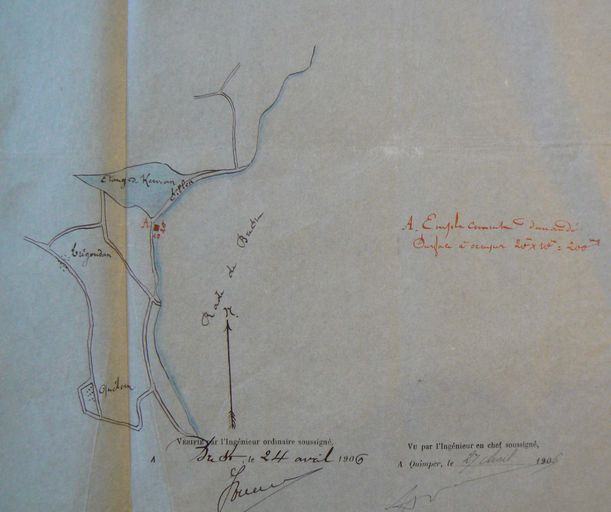 Etang de Kerouan
A
20
10
Trégoudan
Quélern
Rade de Brest
N.
A. Emplacement demandé
Surface à occuper 20m x 10m = 200m²
VÉRIFIÉ par l'Ingénieur ordinaire soussigné,
A Brest, le 24 avril 1906
VU par l'Ingénieur en chef soussigné,
A Quimper, le 27 avril 1906